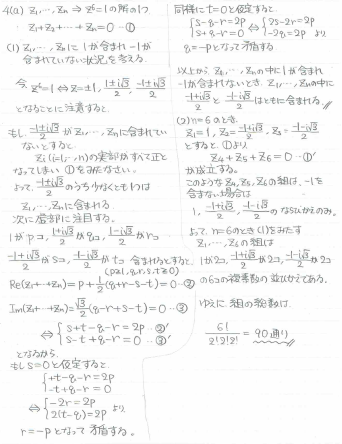 4(a) z₁, …, zₙ ⇒ z⁶=1の所の1つ
z₁+z₂+ … +zₙ = 0 …①
(1) z₁, …, zₙに1が含まれ-1が
含まれていない状況を考える.
今 z⁶=1 ⇔ z=±1, (1±√3i)/2, (-1±√3i)/2
となることに注意すると.
もし (-1±√3i)/2 が z₁, …, zₙに含まれてい
ないとすると
zᵢ(i=1,…,n)の実部がすべて正と
なってしまい ①をみたさない。
よって (-1±√3i)/2 のうち少なくとも1つは
z₁, …, zₙに含まれる.
次に虚部に注目する。
1がpコ, (1+√3i)/2がqコ, (1-√3i)/2がrコ
(-1+√3i)/2がsコ, (-1-√3i)/2がtコ 含まれるとすると,
(p≧1, q,r,s,t≧0)
Re(z₁+ …+zₙ) = p + 1/2(q+r-s-t) = 0 …②
Im(z₁+ …+zₙ) = √3/2(q-r+s-t) = 0 …③
⇔ { s+t-q-r=2p …②'
s-t+q-r=0 …③'
となるから.
もしs=0と仮定すると
{ +t-q-r=2p
-t+q-r=0
⇔ { -2r=2p
2(t-q)=2p より
r=-pとなって矛盾する。
同様にt=0と仮定すると
{ s-q-r=2p
s+q-r=0 ⇔ { 2s-2r=2p
-2q=2p より
q=-pとなって矛盾する
以上から, z₁, …, zₙの中に1が含まれ
-1が含まれないとき, z₁, …, zₙの中に
(-1+√3i)/2 と (-1-√3i)/2 はともに含まれる.
(2) n=6のとき.
z₁=1, z₂=(-1+√3i)/2, z₃=(-1-√3i)/2
とすると, ①より
z₄+z₅+z₆=0 …①'
が成立する。
このような z₄, z₅, z₆の組は, -1を
含まない場合は
1, (-1+√3i)/2, (-1-√3i)/2 のならびかえのみ。
よって, n=6のとき(1)をみたす
z₁, …, z₆の組は
1が2コ, (-1+√3i)/2が2コ, (-1-√3i)/2が2コ
の6つの複素数の並びかえである.
ゆえに 組の総数は.
6!/(2!2!2!) = 90通り